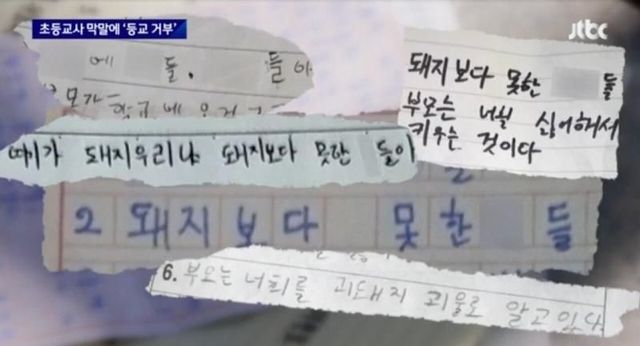 초등교사 막말에 '등교 거부'
jtbc
에 들. 들아
돼지보다 못한 들
부모는 너희 싫어해서
키우는 것이다
여기가 돼지우리냐 돼지보다 못한 들이
2 돼지보다 못한 들
6. 부모는 너희를 괴물로 알고 있다